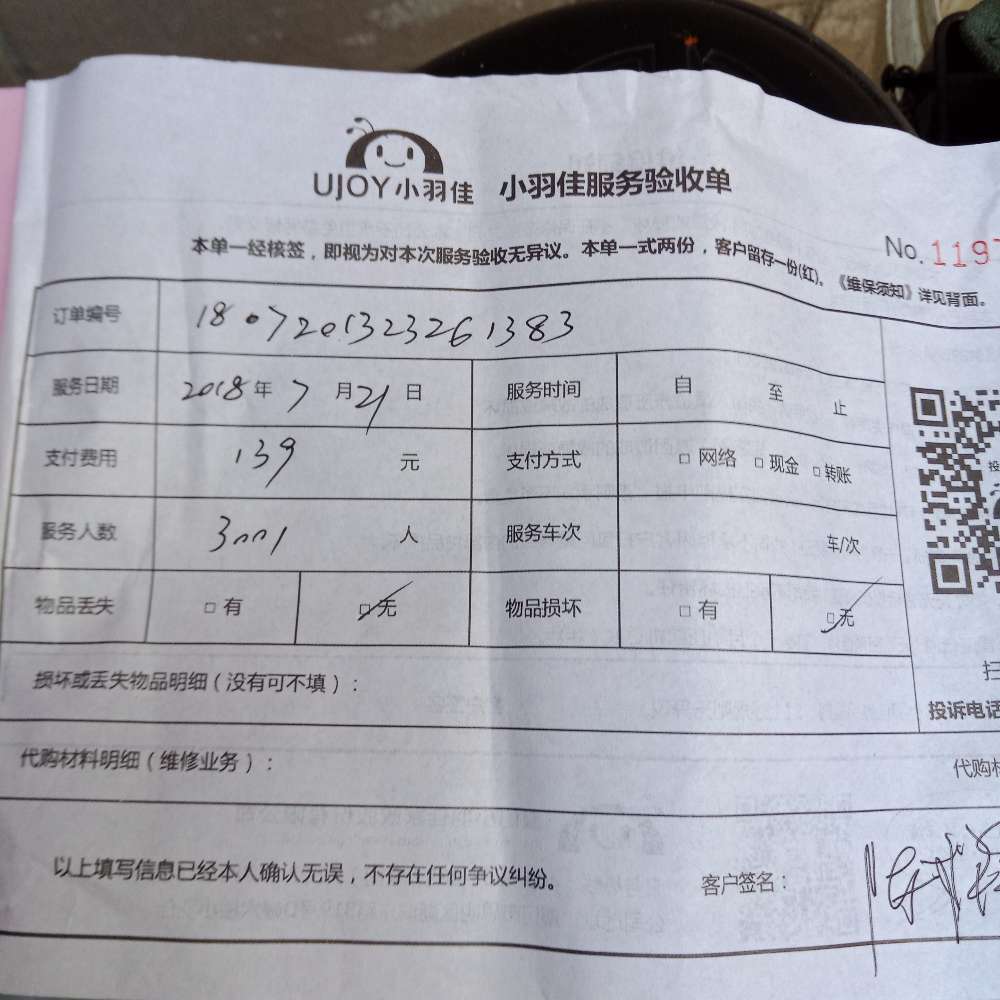 UJOY小羽佳 小羽佳服务验收单
本单一经核签，即视为对本次服务验收无异议。本单一式两份，客户留存一份(红)。《维保须知》详见背面。
No.1197
订单编号 1807201323261383
服务日期 2018年7月21日 服务时间 自 至 止
支付费用 139 元 支付方式 □网络 □现金 □转账
服务人数 3001 人 服务车次 车/次
物品丢失 □有 □无 物品损坏 □有 □无
扫
损坏或丢失物品明细（没有可不填）：
投诉电话
代购材料明细（维修业务）： 代购材
以上填写信息已经本人确认无误，不存在任何争议纠纷。 客户签名：